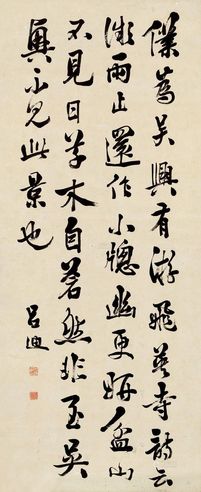 僕為吳興有游飛英寺詩云
微雨止還作小牕幽更妍盆山
不見日草木自蒼然非至吳
興不見此景也
呂迪